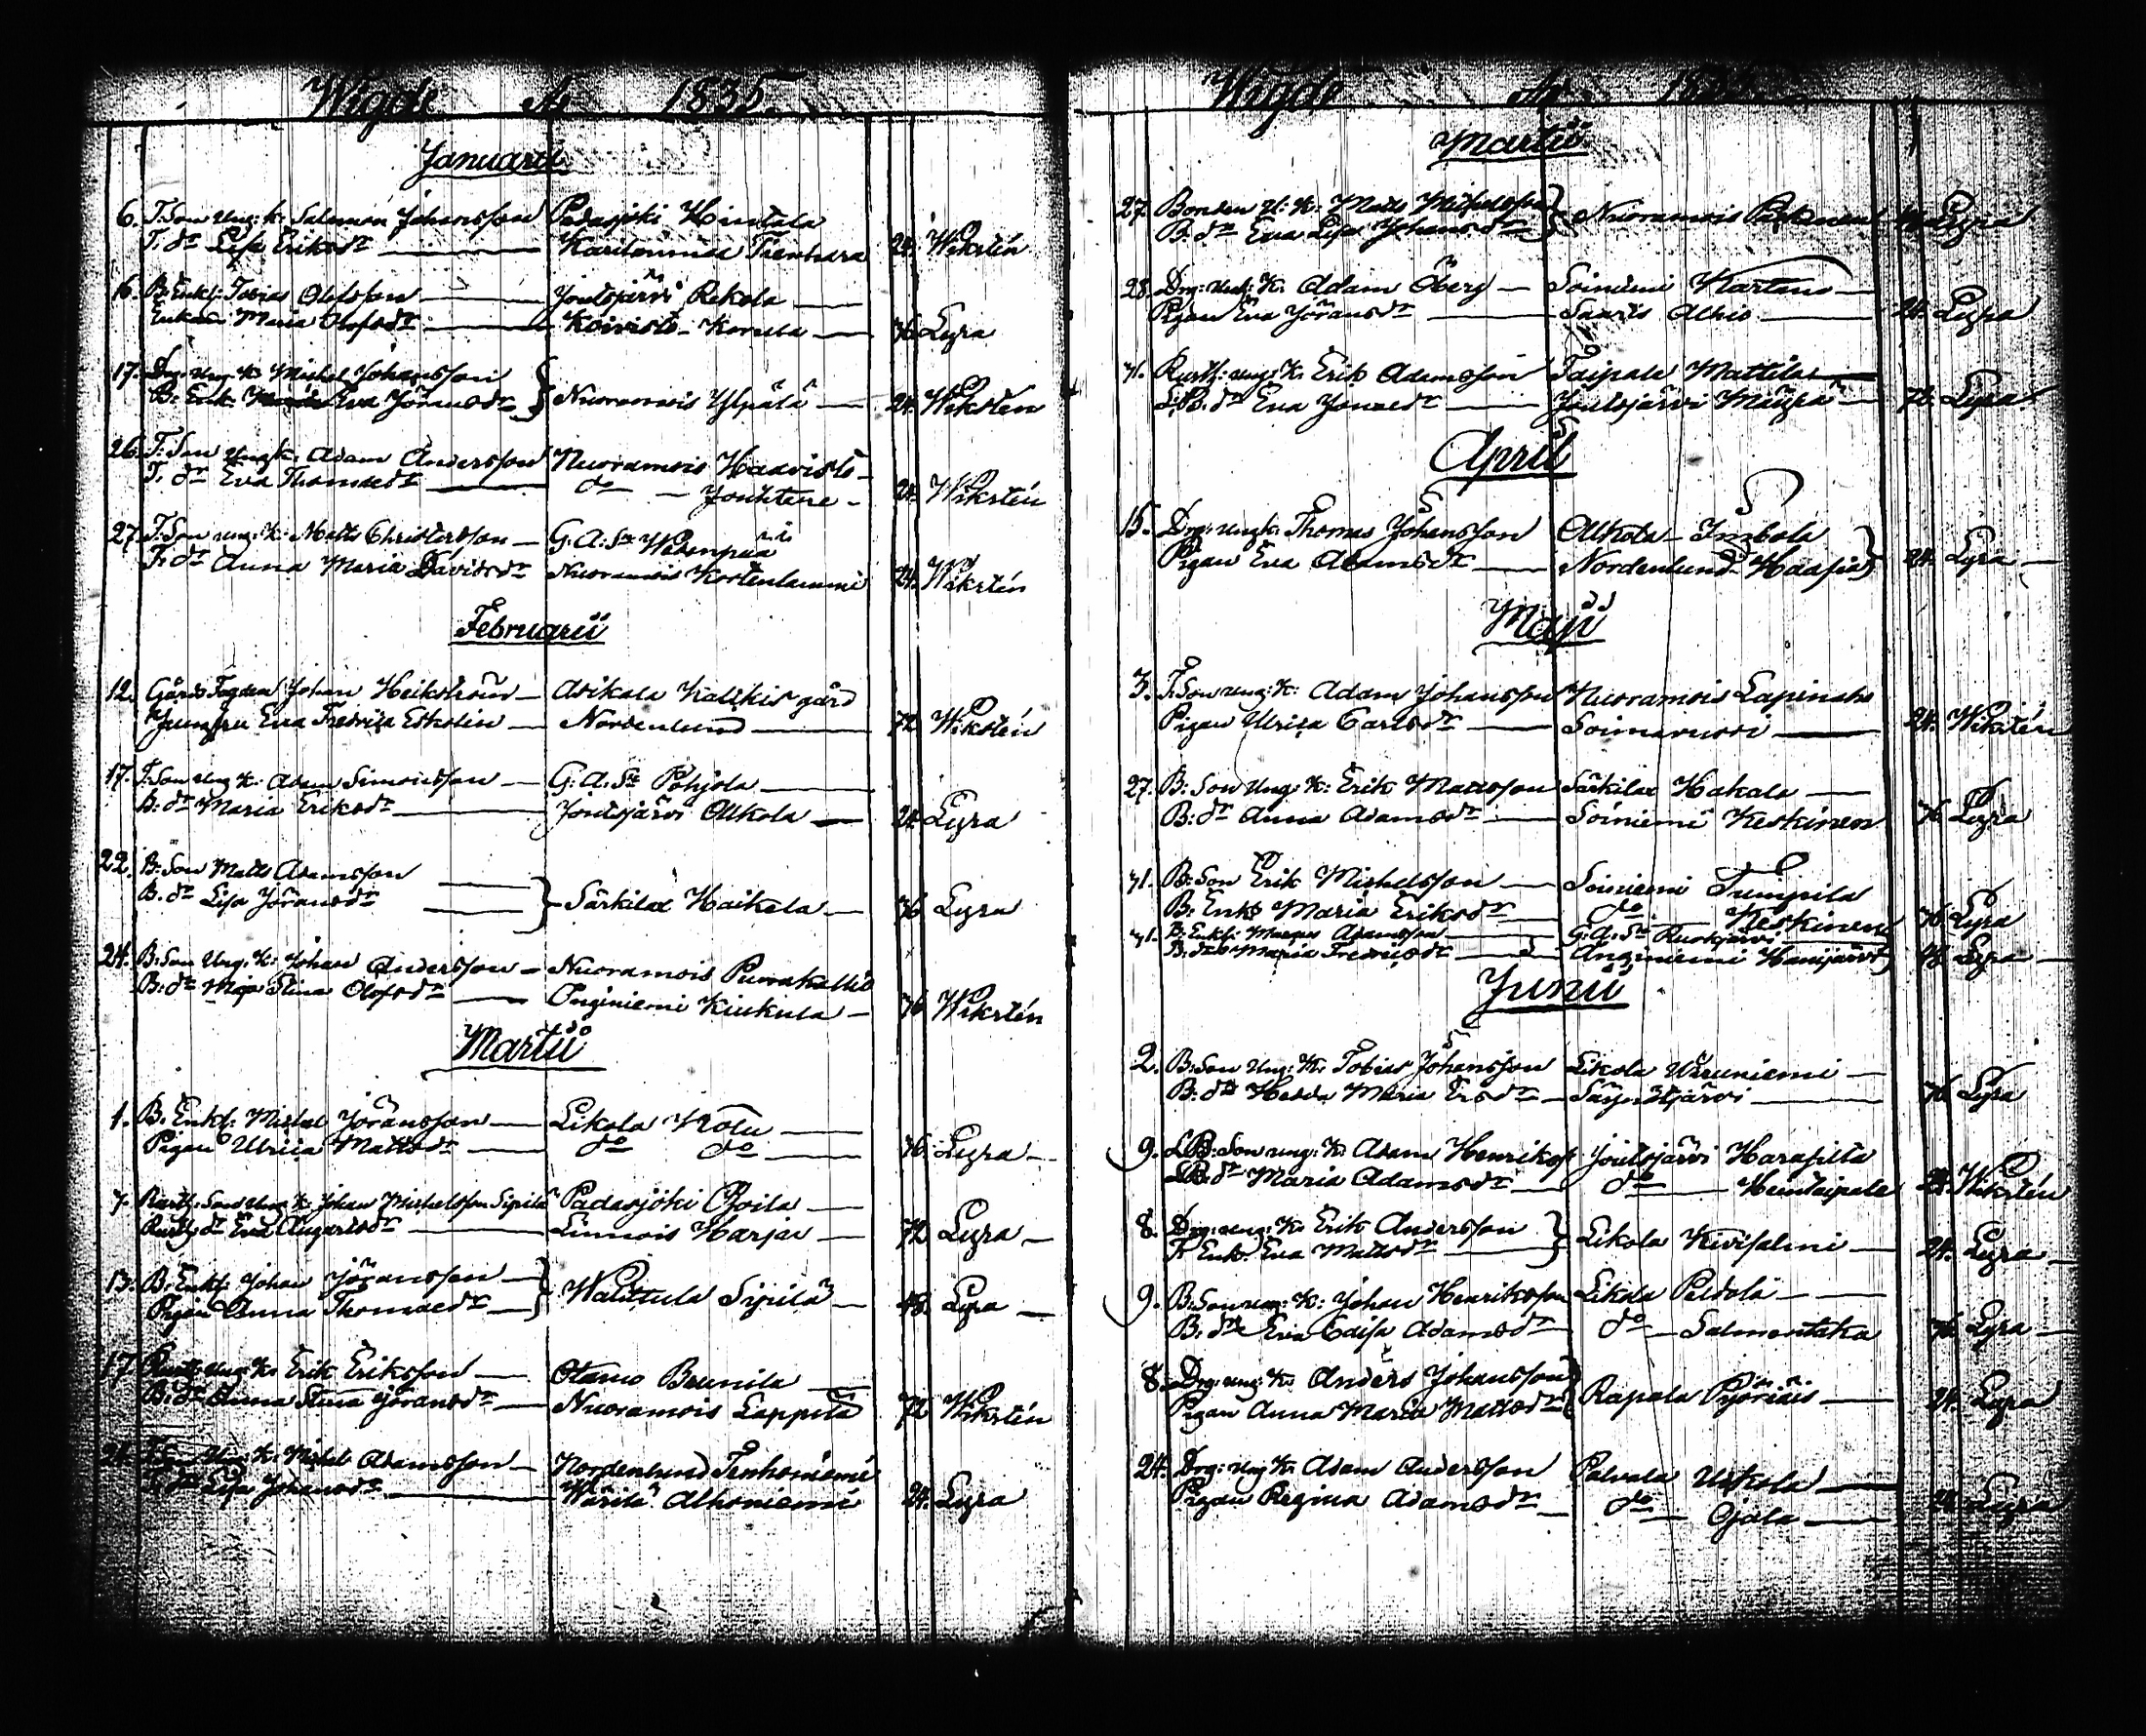 Wigde År 1835.
Januarii
6. T. Son Ung. K. Salomon Johansson Padasjoki Hintala
T. dr Lisa Eriksdr Karilanmaa Tienhara 24. Wikstén
16. B. Enkl. Tobias Olofsson Joutsjärvi Rekola
Enkan Maria Olofsdr Koivisto Korula 36 Lyra
17. Drg. Ung. K. Michel Johansson
B. Enk. Eva Göransdr Nuoramois Ylipälä 24. Wikstén
26. T. Son Ungk. Adam Andersson Nuoramois Haavisto
T. dr Eva Thomaedr do Jouhtene 24. Wikstén
27. T. Son ung. K. Matts Christersson G. A. Sta
T. dr Anna Maria Davidsdr Nuoramois Kortenlammi 24. Wikstén
Februarii
12. Gårds Fogden Johan Heikström Asikala Kalkis gård
Jumfru Eva Fredrica Eskolin Nordenlund 72 Wikstén
17. T. Son Ung K. Adam Simonsson G. A. Sta Pohjola
B. dr Maria Eriksdr Joutsjärvi Alkola 24 Lyra
22. B. Son Matts Adamsson
B. dr Lisa Göransdr Särkilax Haikala 36 Lyra
24. B. Son Ung. K. Johan Andersson Nuoramois Purnukallio
B. dr Maja Stina Olofsdr Onginiemi Kiukula 36 Wikstén
Martii
1. B. Enkl. Michel Göransson Likola Kolu
Pigan Ulrica Mattsdr do do 36 Lyra
7. Rusth. Son Ung K. Johan Michelsson Sipilä Padasjoki
Rusth. dr Eva Augustsdr Linnois Harjas 72 Lyra
13. B. Enkl. Johan Göransson
Pigan Anna Thomaedr Walittula Sipilä 48. Lyra
17 Rusth. Ung. K. Erik Eriksson Otamo Brunila
B. dr Anna Stina Göransdr Nuoramois Lappila 72 Wikstén
24. T. Son Ung. K. Michel Adamsson Nordenlund Tenhoniemi
T. dr Lisa Johansdr Wärilä Alhoniemi 24. Lyra
Wigde År 1835.
Martii
27. Bonden Y. K. Matts Michelsson
B. dr Eva Lisa Johansdr Nuoramois Lyra
28. Drg. Ung. K. Adam Öberg Soiniemi Kartano
Pigan Eva Göransdr Saaris Alhio 24. Lyra
31. Rusth. ung. K. Erik Adamsson Taipale Mattila
B. dr Eva Jonaedr Joutsjärvi Mäyrä 72. Lyra
April
15. Drg. Ungk. Thomas Johansson Alkola Imbola
Pigan Eva Adamsdr Nordenlund Haasia 24. Lyra
Maji
3. T. Son ung. K. Adam Johansson Nuoramois
Pigan Ulrica Carlsdr 24. Wikstén
27. B. Son Ung. K. Erik Mattsson Särkilax Hakala
B. dr Anna Adamsdr Soiniemi Keskinen 36 Lyra
31. B. Son Erik Michelsson Soiniemi Tumpila
B. Enk. Maria Eriksdr do Keskinen 36 Lyra
31. B. Enkl. Adamsson G. A. Sta Ruokjärvi
B. dr Maria Fredricsdr Anginiemi Hanijärvi 48. Lyra
Junii
2. B. Son Ung. K. Tobias Johansson Likola Wiruniemi
B. dr Hedda Maria Ersdr Säynätjärvi 36 Lyra
9. LB. Son ung. K. Adam Henriksson Joutsjärvi Harasilta
LB. dr Maria Adamsdr do Heintaipale Wikstén
8. Drg. ung. K. Erik Andersson
T. Enk. Eva Mattsdr Likola Kivisalmi 24. Lyra
9. B. Son ung. K. Johan Henriksson Likola Peldola
B. dr Eva Caisa Adamsdr do Salmentaka 36 Lyra
8. Drg. ung. K. Anders Johansson
Pigan Anna Maria Mattsdr Rapala Pyöriäis 24. Lyra
24. Drg. Ung K. Adam Andersson Palvala Uskola
Pigan Regina Adamsdr do Ojala 24. Lyra